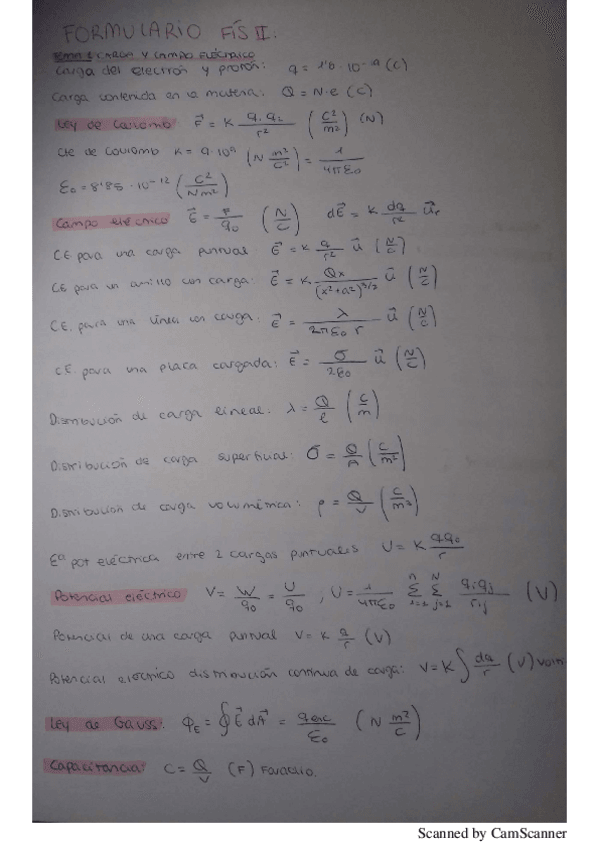 FORMULARIO FÍS II.
TEMA 1: CARGA Y CAMPO ELÉCTRICO
Carga del electrón y protón: q = 1'6 · 10⁻¹⁹ (C)
Carga contenida en la materia: Q = N·e (C)
Ley de Coulomb F⃗ = K q₁ q₂ / r² (C²/m²) (N)
Cte de Coulomb K = 9·10⁹ (N m²/C²) = 1/4πε₀
ε₀ = 8'85 · 10⁻¹² (C²/Nm²)
Campo eléctrico E⃗ = F/q₀ (N/C) dE⃗ = K dq/r² u⃗r
CE para una carga puntual E⃗ = K q/r² u⃗ (N/C)
CE para un anillo con carga: E⃗ = K · Qx/(x²+a²)^3/2 u⃗ (N/C)
CE. para una línea con carga: E⃗ = λ/2πε₀ r u⃗ (N/C)
CE. para una placa cargada: E⃗ = σ/2ε₀ u⃗ (N/C)
Distribución de carga lineal: λ = Q/l (C/m)
Distribución de carga superficial: σ = Q/A (C/m²)
Distribución de carga volumétrica: ρ = Q/V (C/m³)
Eª pot eléctrica entre 2 cargas puntuales U = K q q₀/r
Potencial eléctrico V = W/q₀ = U/q₀ , U = 1/4πε₀ Σ Σ qᵢqⱼ/rᵢⱼ (V)
Potencial de una carga puntual V = K q/r (V)
Potencial eléctrico distribución continua de carga: V = K ∫ dq/r (V)
Ley de Gauss: Φ_E = ∮ E⃗ dA⃗ = q enc/ε₀ (N m²/C)
Capacitancia: C = Q/V (F) Faradio.
Scanned by CamScanner